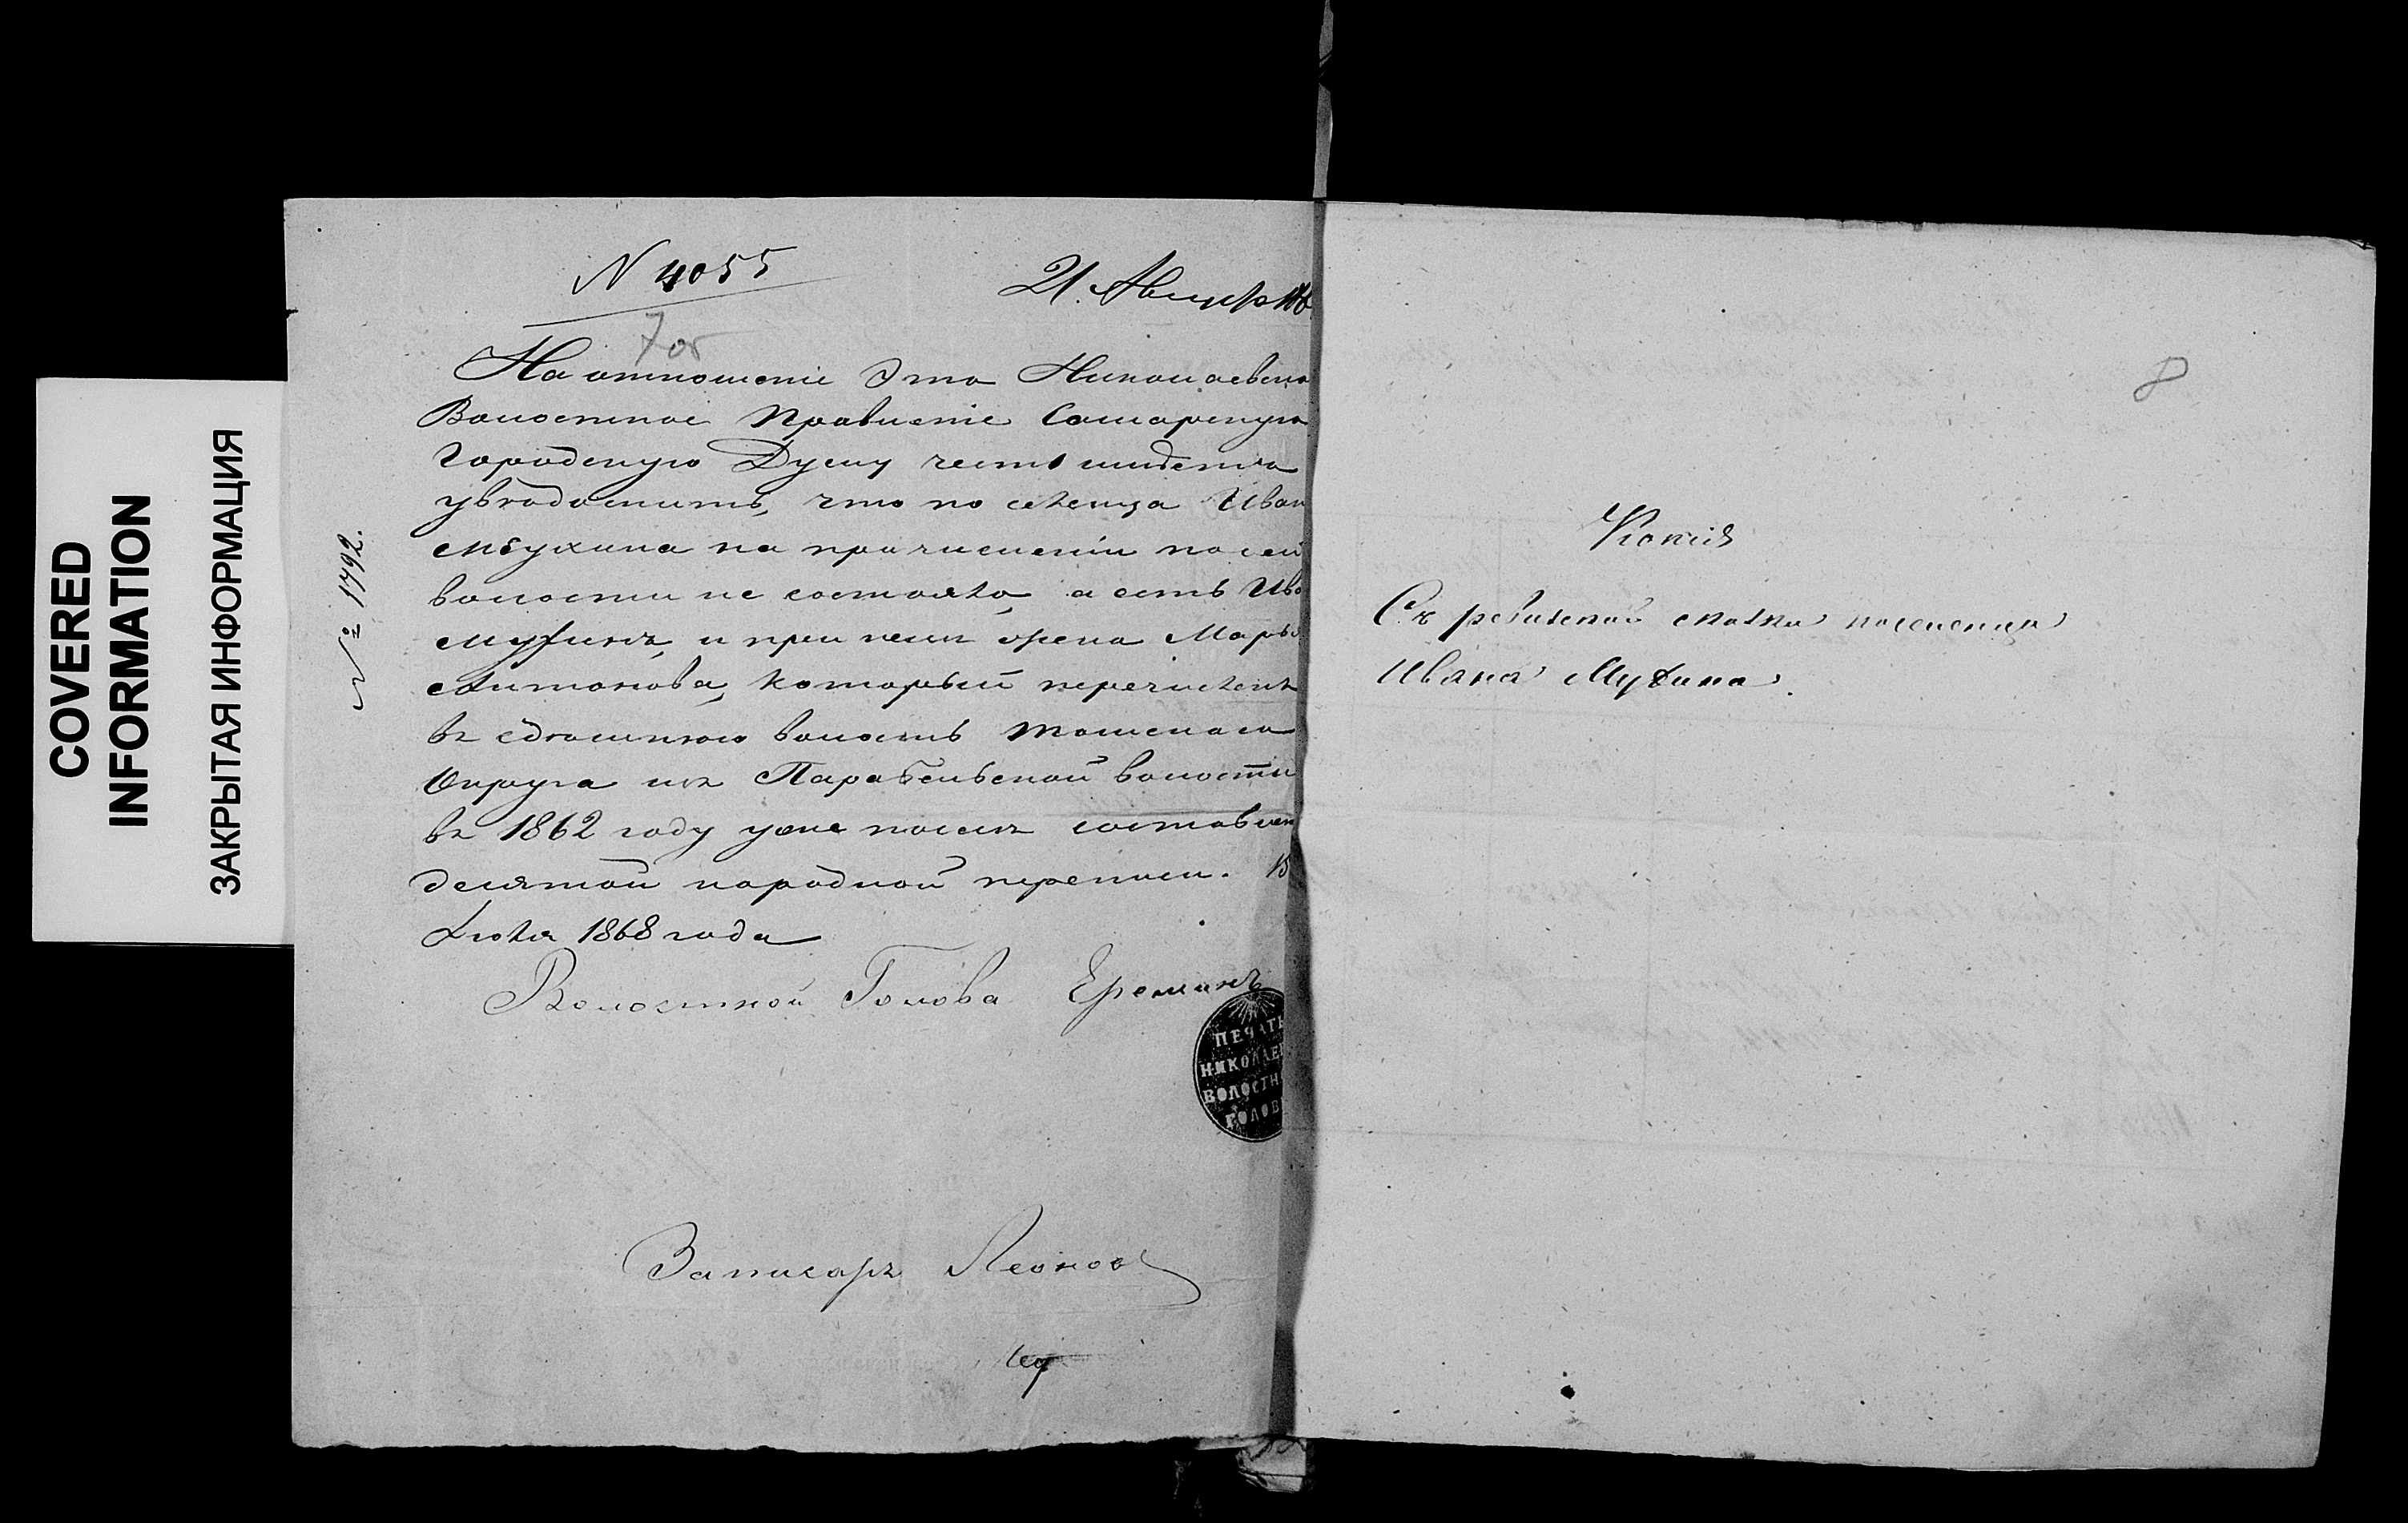 COVERED
INFORMATION
ЗАКРЫТАЯ ИНФОРМАЦИЯ
N 4055
21. Августа 186
7об
№ 1792.
На отношеніе Это Николаевско
Волостное Правленіе Самарскую
Городскую Думу честь имѣетъ
увѣдомить, что поселенца Иван
Мбухина на причисленіи по сей
волости не состояло, а есть Ива
Мухинъ, и при немъ жена Марья
Антонова, который перечисленъ
въ здѣшнюю волость Томскаго
Округа изъ Парабельской волости
въ 1862 году уже послѣ составлен
десятой народной переписи. 15
Іюля 1868 года
Волостной Голова Ереминъ
ПЕЧАТЬ
НИКОЛАЕВ
ВОЛОСТН
ГОЛОВ
Записарь Леонов
8
Копія
Съ ревизской сказки поселенца
Ивана Мухина.